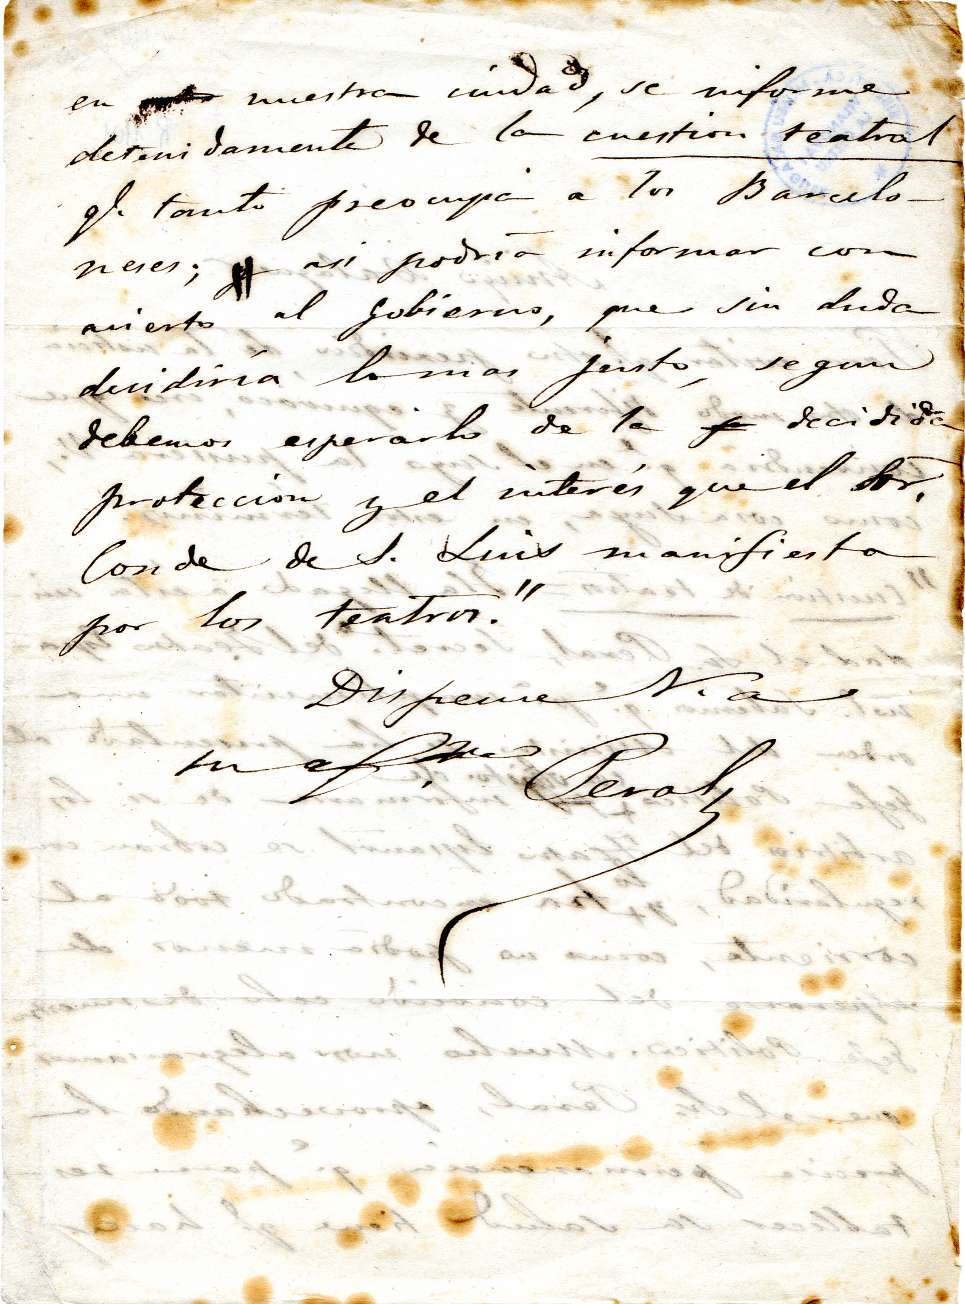 en nuestra ciudad, se informe
detenidamente de la cuestion teatral
qe. tanto preocupa a los Barcelo-
neses; y asi podria informar con
acierto al Gobierno, que sin duda
decidiria lo mas justo, segun
debemos esperarlo de la decidida
protección y el interés que el Sor.
Conde de S. Luis manifiesta
por los teatros."
Dispense V. a
su afmo
Peral